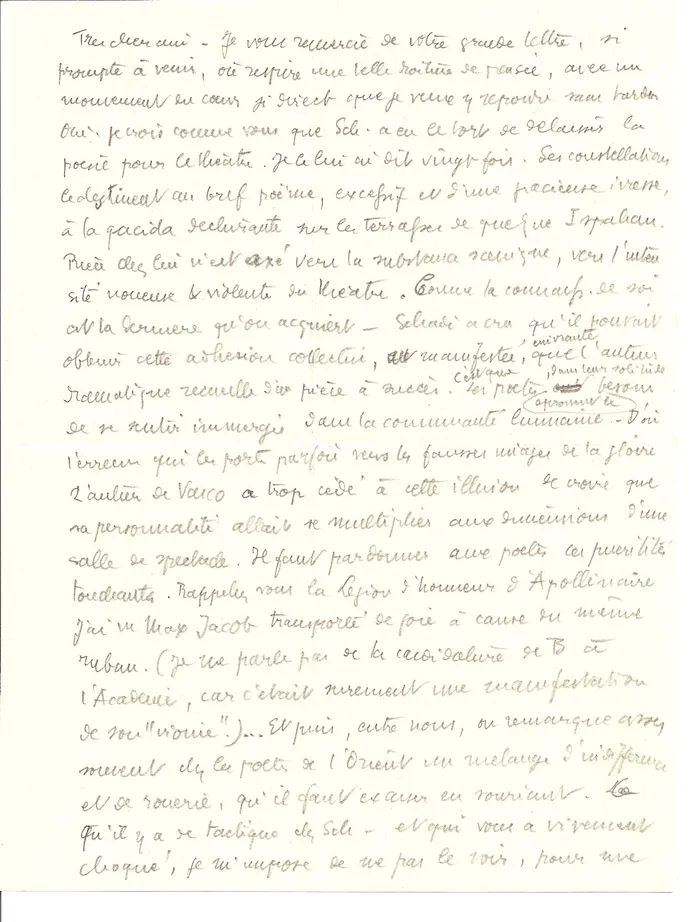 Tres cher ami - Je vous remercie de votre grande lettre, si
prompte à venir, où respire une telle droiture de pensée, avec un
mouvement du cœur si direct que je veux y repondre sans tarder
Oui. Je crois comme vous que Sch. a eu le tort de délaisser la
poesie pour le théâtre. Je le lui ai dit vingt fois. Ses constellations
le destinent au bref poème, excessif et d'une précieuse ivresse,
à la qacida déchirante sur les terrasses de quelque Ispahan.
Rien chez lui n'est axé vers la substance scénique, vers l'inten
sité noueuse & violente du théâtre. Comme la connaiss. de soi
est la derniere qu'on acquiert - Schadé a cru qu'il pouvait
obtenir cette adhesion collective, manifestée, enivrante que l'auteur
dramatique recueille d'une pièce à succès. C'est que les poetes, dans leur solitude
éprouvent le besoin
de se sentir immergés dans la communauté humaine. D'où
l'erreur qui les porte parfois vers les fausses images de la gloire
L'auteur de Vasco a trop cédé à cette illusion de croire que
sa personnalité allait se multiplier aux dimensions d'une
salle de spectacle. Il faut pardonner aux poetes ces puerilités
touchantes. Rappelez vous la Légion d'honneur d'Apollinaire
J'ai vu Max Jacob transporté de joie à cause du même
ruban. (Je ne parle pas de la candidature de B à
l'Academie, car c'était surement une manifestation
de son "ironie".)... Et puis, entre nous, on remarque assez
souvent chez les poetes de l'Orient un mélange d'indifférence
et de rouerie, qu'il faut excuser en souriant.
Qu'il y a de tactique chez Sch - et qui vous a vivement
choqué, je m'impose de ne pas le voir, pour une